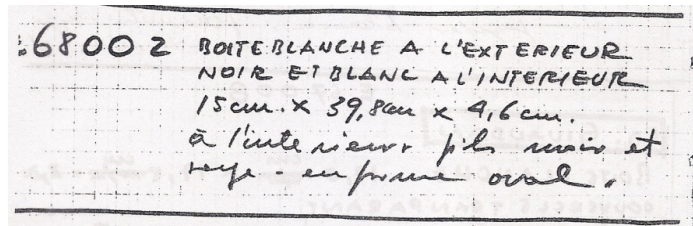 :68002 BOITE BLANCHE A L'EXTERIEUR
NOIR ET BLANC A L'INTERIEUR
15cm. x 39,8cm x 4,6cm.
à l'interieur fils noir et
rouge - en forme oval.